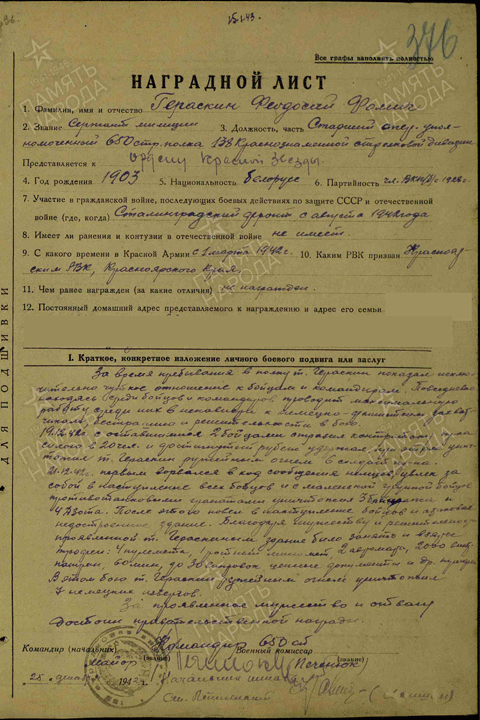 25.1.43.
376
Все графы заполнять полностью
НАГРАДНОЙ ЛИСТ
1. Фамилия, имя и отчество Гераскин Феодосий Фомич
2. Звание Сержант милиции 3. Должность, часть Старший опер. упол-
номоченный 650 стр. полка 138 Краснознаменной стрелковой дивизии
Представляется к ордену Красной Звезды.
4. Год рождения 1903 5. Национальность белорус 6. Партийность чл. ВКП(б) с 1928 г.
7. Участие в гражданской войне, последующих боевых действиях по защите СССР и отечественной
войне (где, когда) Сталинградский фронт с августа 1942 года
8. Имеет ли ранения и контузии в отечественной войне не имеет
9. С какого времени в Красной Армии с марта 1942 г. 10. Каким РВК призван Красноар-
ским РВК, Красноярского края
11. Чем ранее награжден (за какие отличия) не награжден.
12. Постоянный домашний адрес представляемого к награждению и адрес его семьи
I. Краткое, конкретное изложение личного боевого подвига или заслуг
За время пребывания в полку т. Гераскин показал исклю-
чительно чуткое отношение к бойцам и командирам. Повседневно
находясь среди бойцов и командиров проводит
работу среди них в ненависти к немецко-фашистским
бесстрашию и решительности в бою.
19.12.42 г. с оставшимися 2 бойцами отразил контратаку
рубеж удержал, при этом унич-
тожил т. Гераскин ружейным огнем 6 солдат
21.12.42 г. первым ворвался в ход сообщения увлекая за
собой в наступление всех бойцов и с маленькой группой бойцов
противотанковыми гранатами уничтожил 3 блиндажа и
4 дзота. После этого повел в наступление бойцов и
недостроенное здание. Благодаря мужеству и решительности
проявленной т. Гераскиным здание было занято и взяты
трофеи: 4 пулемета, 1 ротный миномет, 2 автомата, 2000
патрон, 60 мин, до 30 ценные документы и др.
В этом бою т. Гераскин ружейным огнем уничтожил
7 немецких
За проявленное мужество и отвагу
достоин правительственной награды.
Командир (начальник) Командир 650 сп Военный комиссар
майор (звание) Печенюк (звание)
25 декабря 1942 г. Начальник штаба
ДЛЯ ПОДШИВКИ
ПАМЯТЬ
НАРОДА